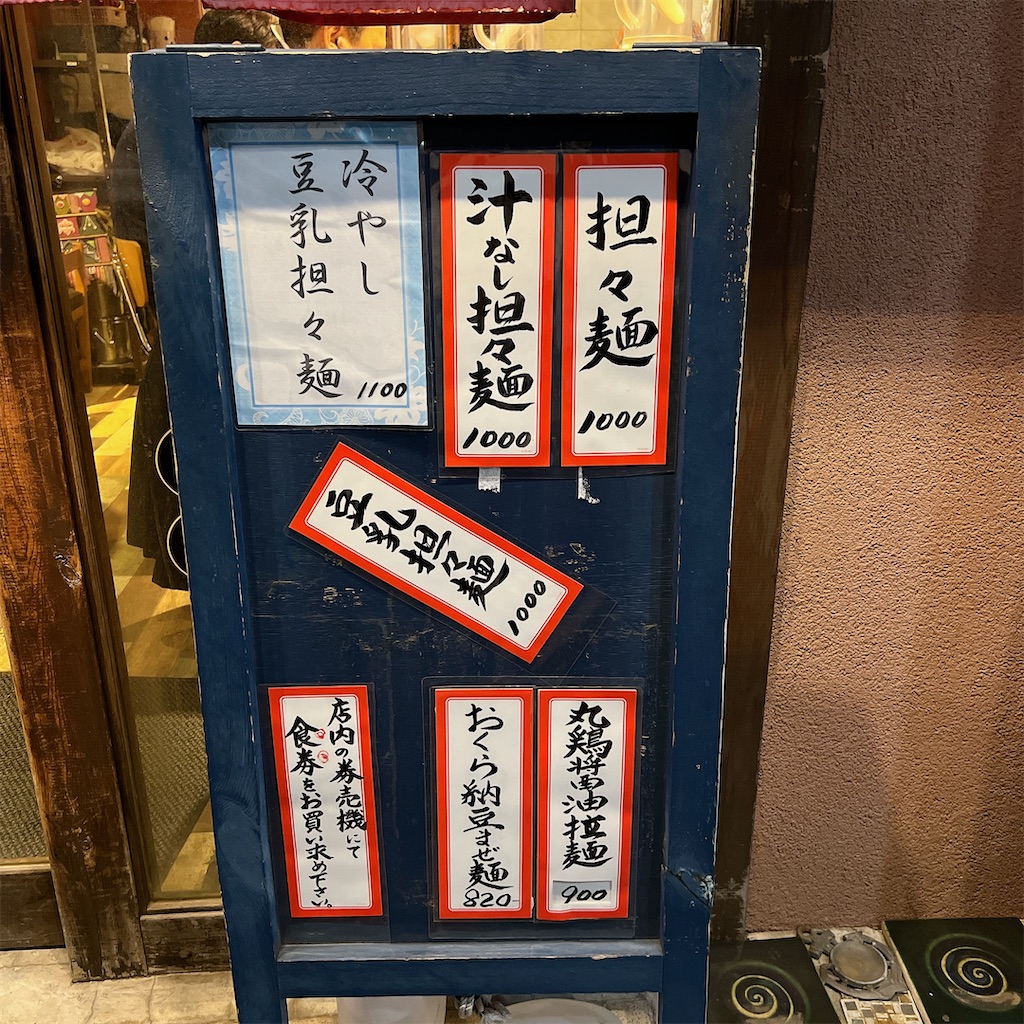 担々麺
1000
汁なし担々麺
1000
冷やし
豆乳担々麺
1100
豆乳担々麺
1000
丸鶏醤油拉麺
900
おくら納豆まぜ麺
820-
店内の券売機にて
食券をお買い求め下さい。